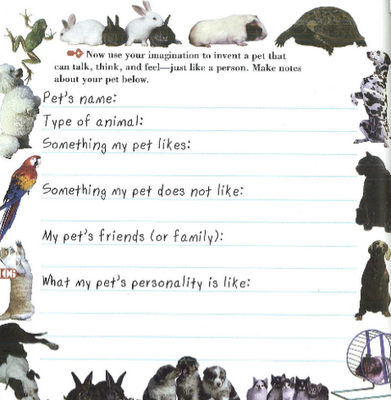 Now use your imagination to invent a pet that
can talk, think, and feel—just like a person. Make notes
about your pet below.
Pet's name:
Type of animal:
Something my pet likes:
Something my pet does not like:
My pet's friends (or family):
What my pet's personality is like:
106